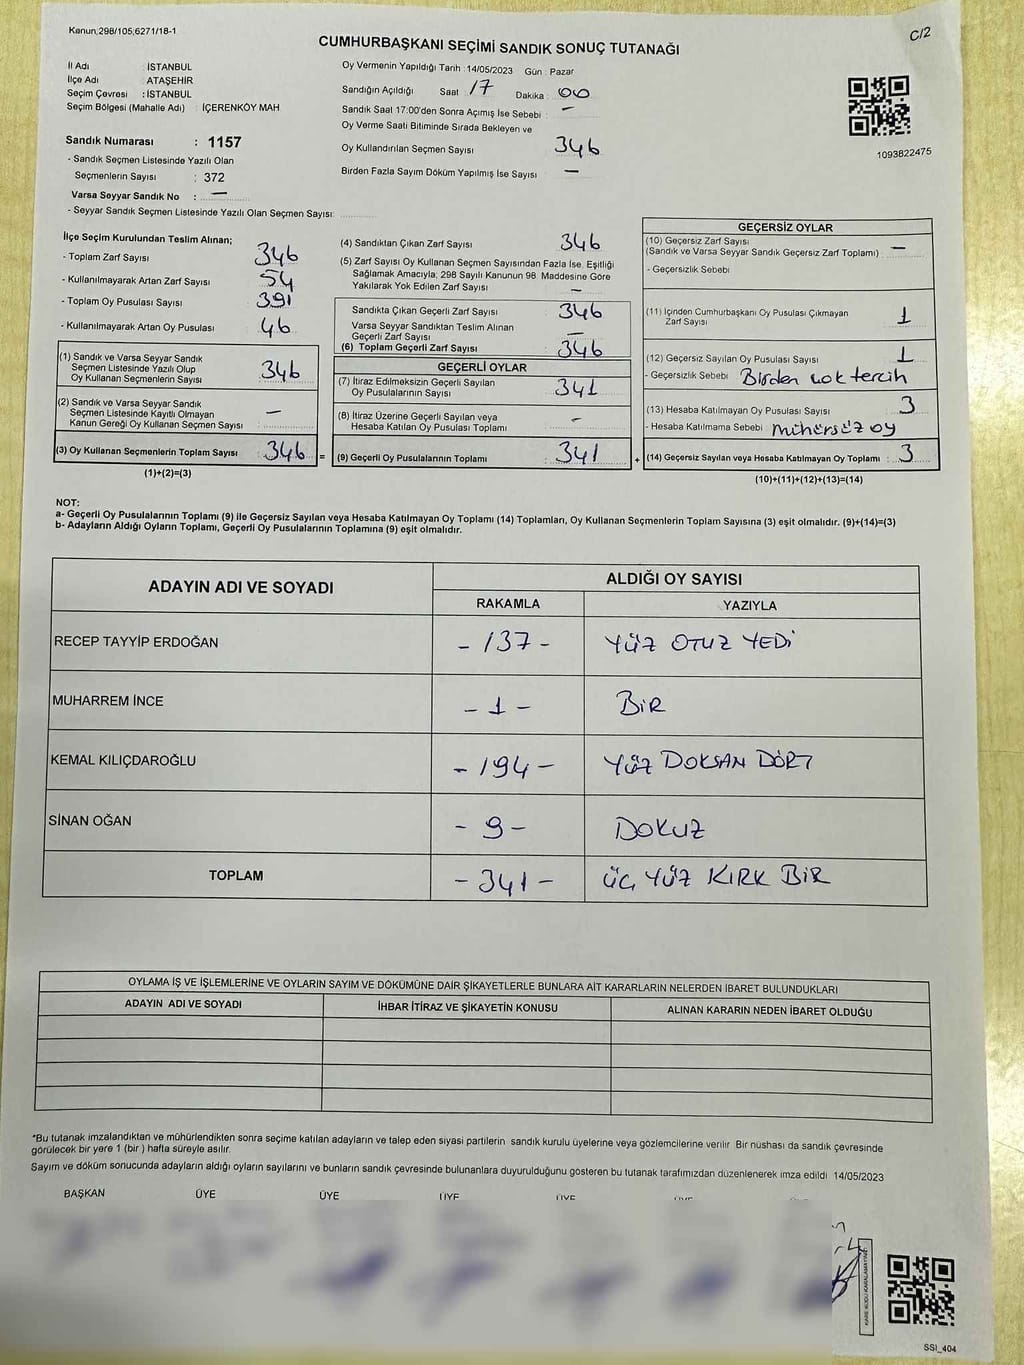 Kanun,298/105,6271/18-1
C/2
CUMHURBAŞKANI SEÇİMİ SANDIK SONUÇ TUTANAĞI
İl Adı : İSTANBUL
İlçe Adı : ATAŞEHİR
Seçim Çevresi : İSTANBUL
Seçim Bölgesi (Mahalle Adı) : İÇERENKÖY MAH
Sandık Numarası : 1157
- Sandık Seçmen Listesinde Yazılı Olan
Seçmenlerin Sayısı : 372
Varsa Seyyar Sandık No : —
- Seyyar Sandık Seçmen Listesinde Yazılı Olan Seçmen Sayısı:
Oy Vermenin Yapıldığı Tarih : 14/05/2023 Gün : Pazar
Sandığın Açıldığı Saat : 17 Dakika : 00
Sandık Saat 17:00'den Sonra Açımış İse Sebebi : —
Oy Verme Saati Bitiminde Sırada Bekleyen ve
Oy Kullandırılan Seçmen Sayısı 346
Birden Fazla Sayım Döküm Yapılmış İse Sayısı —
1093822475
İlçe Seçim Kurulundan Teslim Alınan;
- Toplam Zarf Sayısı : 346
- Kullanılmayarak Artan Zarf Sayısı : 54
- Toplam Oy Pusulası Sayısı : 391
- Kullanılmayarak Artan Oy Pusulası : 46
(1) Sandık ve Varsa Seyyar Sandık
Seçmen Listesinde Yazılı Olup
Oy Kullanan Seçmenlerin Sayısı : 346
(2) Sandık ve Varsa Seyyar Sandık
Seçmen Listesinde Kayıtlı Olmayan
Kanun Gereği Oy Kullanan Seçmen Sayısı : —
(3) Oy Kullanan Seçmenlerin Toplam Sayısı : 346 =
(1)+(2)=(3)
(4) Sandıktan Çıkan Zarf Sayısı 346
(5) Zarf Sayısı Oy Kullanan Seçmen Sayısından Fazla İse, Eşitliği
Sağlamak Amacıyla, 298 Sayılı Kanunun 98. Maddesine Göre
Yakılarak Yok Edilen Zarf Sayısı —
Sandıkta Çıkan Geçerli Zarf Sayısı 346
Varsa Seyyar Sandıktan Teslim Alınan
Geçerli Zarf Sayısı —
(6) Toplam Geçerli Zarf Sayısı 346
GEÇERLİ OYLAR
(7) İtiraz Edilmeksizin Geçerli Sayılan
Oy Pusulalarının Sayısı : 341
(8) İtiraz Üzerine Geçerli Sayılan veya
Hesaba Katılan Oy Pusulası Toplamı : -
(9) Geçerli Oy Pusulalarının Toplamı : 341 +
GEÇERSİZ OYLAR
(10) Geçersiz Zarf Sayısı
(Sandık ve Varsa Seyyar Sandık Geçersiz Zarf Toplamı) —
- Geçersizlik Sebebi
(11) İçinden Cumhurbaşkanı Oy Pusulası Çıkmayan
Zarf Sayısı 1
(12) Geçersiz Sayılan Oy Pusulası Sayısı 1
- Geçersizlik Sebebi Birden çok tercih
(13) Hesaba Katılmayan Oy Pusulası Sayısı 3
- Hesaba Katılmama Sebebi : mühürsüz oy
(14) Geçersiz Sayılan veya Hesaba Katılmayan Oy Toplamı : 3
(10)+(11)+(12)+(13)=(14)
NOT:
a- Geçerli Oy Pusulalarının Toplamı (9) ile Geçersiz Sayılan veya Hesaba Katılmayan Oy Toplamı (14) Toplamları, Oy Kullanan Seçmenlerin Toplam Sayısına (3) eşit olmalıdır. (9)+(14)=(3)
b- Adayların Aldığı Oyların Toplamı, Geçerli Oy Pusulalarının Toplamına (9) eşit olmalıdır.
ADAYIN ADI VE SOYADI ALDIĞI OY SAYISI
RAKAMLA YAZIYLA
RECEP TAYYİP ERDOĞAN - 137 - YÜZ OTUZ YEDİ
MUHARREM İNCE - 1 - BİR
KEMAL KILIÇDAROĞLU - 194 - YÜZ DOKSAN DÖRT
SİNAN OĞAN - 9 - DOKUZ
TOPLAM - 341 - ÜÇ YÜZ KIRK BİR
OYLAMA İŞ VE İŞLEMLERİNE VE OYLARIN SAYIM VE DÖKÜMÜNE DAİR ŞİKAYETLERLE BUNLARA AİT KARARLARIN NELERDEN İBARET BULUNDUKLARI
ADAYIN ADI VE SOYADI İHBAR İTİRAZ VE ŞİKAYETİN KONUSU ALINAN KARARIN NEDEN İBARET OLDUĞU
*Bu tutanak imzalandıktan ve mühürlendikten sonra seçime katılan adayların ve talep eden siyasi partilerin sandık kurulu üyelerine veya gözlemcilerine verilir Bir nüshası da sandık çevresinde
görülecek bir yere 1 (bir ) hafta süreyle asılır.
Sayım ve döküm sonucunda adayların aldığı oyların sayılarını ve bunların sandık çevresinde bulunanlara duyurulduğunu gösteren bu tutanak tarafımızdan düzenlenerek imza edildi 14/05/2023
BAŞKAN ÜYE ÜYE ÜYE ÜYE ÜYE ÜYE
KARE KODU KARALAMAYINIZ
SSI_404